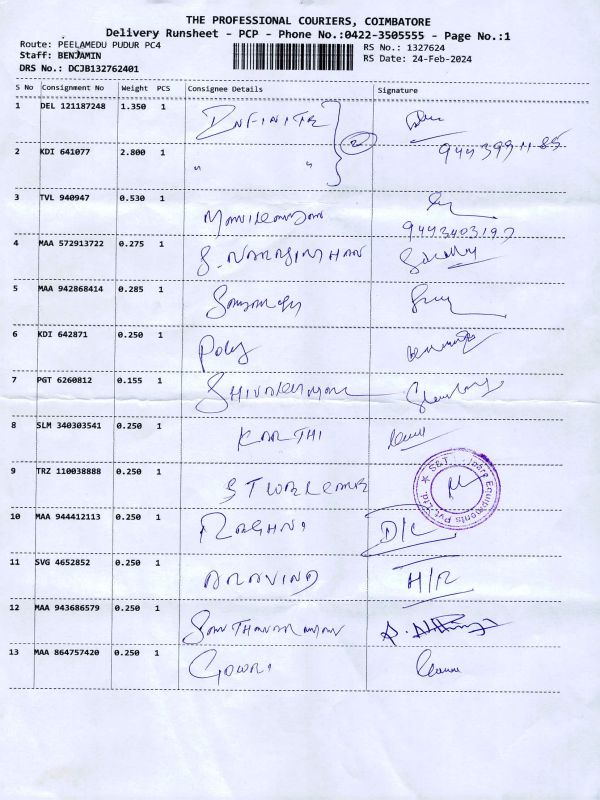 THE PROFESSIONAL COURIERS, COIMBATORE
Delivery Runsheet - PCP - Phone No.:0422-3505555 - Page No.:1
Route: PEELAMEDU PUDUR PC4
RS No.: 1327624
Staff: BENJAMIN
RS Date: 24-Feb-2024
DRS No.: DCJB132762401
S No Consignment No Weight PCS Consignee Details Signature
1 DEL 121187248 1.350 1 INFINITE
2 KDI 641077 2.800 1 " "
3 TVL 940947 0.530 1
4 MAA 572913722 0.275 1 S. NARASIMHAN
5 MAA 942868414 0.285 1
6 KDI 642871 0.250 1
7 PGT 6260812 0.155 1
8 SLM 340303541 0.250 1 KARTHI
9 TRZ 110038888 0.250 1
10 MAA 944412113 0.250 1 D/L
11 SVG 4652852 0.250 1 ARAVIND H/R
12 MAA 943686579 0.250 1
13 MAA 864757420 0.250 1 GOWRI